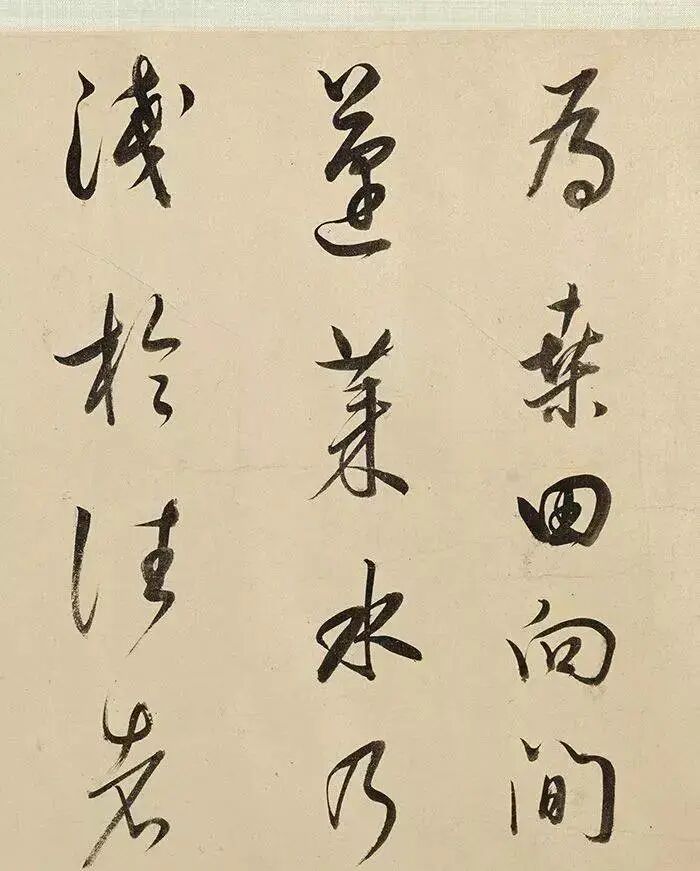 為桑田向間
蓬萊水乃
淺於往者